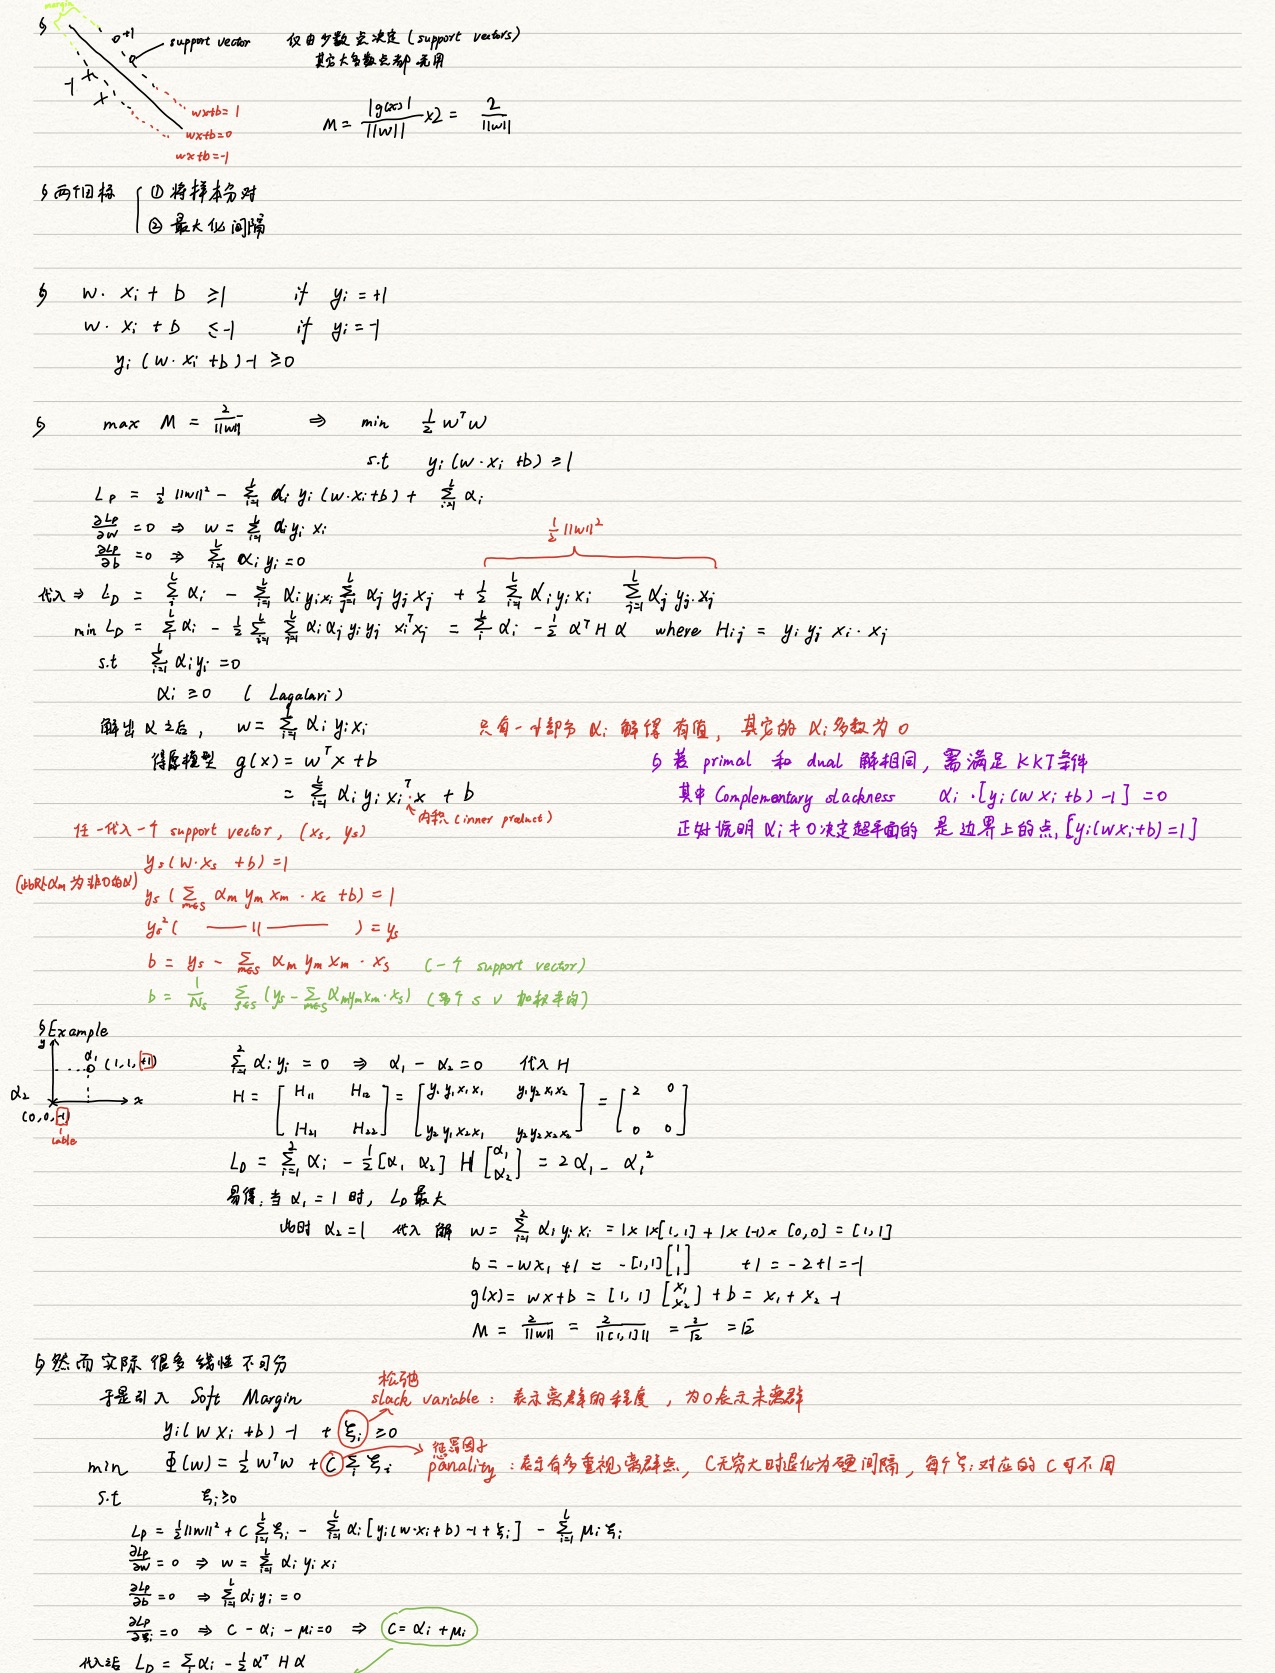 margin
§
0+1
support vector
仅由少数点决定 (support vectors)
其它大多数点都无用
-1
wx+b=1
wx+b=0
wx+b=-1
M = |g(x)| / ||w|| × 2 = 2 / ||w||
§ 两个目标 ① 将样本分对
② 最大化间隔
§ w· xi + b ≥1 if yi = +1
w· xi + b ≤-1 if yi = -1
yi (w· xi +b) -1 ≥0
§ max M = 2/||w|| ⇒ min ½ wᵀw
s.t yi (w·xi +b) ≥1
Lp = ½||w||² - Σ_{i=1}^{L} αi yi (w·xi+b) + Σ_{i=1}^{L} αi
∂Lp/∂w =0 ⇒ w = Σ_{i=1}^{L} αi yi xi
∂Lp/∂b =0 ⇒ Σ_{i=1}^{L} αi yi =0
½||w||²
代入 ⇒ L_D = Σ_i^L αi - Σ_{i=1}^{L} αi yi xi Σ_{j=1}^{L} αj yj xj + ½ Σ_{i=1}^{L} αi yi xi Σ_{j=1}^{L} αj yj·xj
min L_D = Σ_i^L αi - ½ Σ_{i=1}^{L} Σ_{j=1}^{L} αi αj yi yj xiᵀxj = Σ_i^L αi - ½ αᵀHα where Hij = yi yj xi·xj
s.t Σ_{i=1}^{L} αi yi =0
αi ≥0 ( Lagalari )
解出 α 之后, w = Σ_{i=1}^{L} αi yi xi 只有一小部分 αi 解得有值, 其它的 αi 多数为 0
得原模型 g(x) = wᵀx + b
§ 若 primal 和 dual 解相同, 需满足 KKT条件
= Σ_{i=1}^{L} αi yi xiᵀ·x + b
其中 Complementary slackness αi ·[yi(wxi+b) -1] =0
内积 (inner product)
任一代入一个 support vector, (xs, ys)
正好说明 αi≠0决定超平面的 是边界上的点, [yi(wxi+b) =1]
ys (w·xs +b) =1
(此时αm为非0的α) ys ( Σ_{m∈S} αm ym xm · xs +b) = 1
ys² ( —— 11 —— ) = ys
b = ys - Σ_{m∈S} αm ym xm · xs (一个 support vector)
b = 1/Ns Σ_{s∈S} (ys - Σ_{m∈S} αm ym xm·xs) (多个 s v 加权平均)
§ Example
y
α1
(1,1,+1)
α2
x
(0,0,-1)
lable
Σ_{i=1}^{2} αi yi = 0 ⇒ α1 - α2 =0 代入 H
H = [ H11 H12 ; H21 H22 ] = [ y1y1x1x1 y1y2x1x2 ; y2y1x2x1 y2y2x2x2 ] = [ 2 0 ; 0 0 ]
L_D = Σ_{i=1}^{2} αi - ½ [α1 α2] H [α1 ; α2] = 2α1 - α1²
易得: 当 α1 = 1 时, L_D 最大
此时 α2=1 代入 解 w = Σ_{i=1}^{2} αi yi xi = 1×1×[1,1] + 1×(-1)×[0,0] = [1,1]
b = -wx1 +1 = -[1,1][1 ; 1] +1 = -2+1 = -1
g(x) = wx+b = [1,1] [x1 ; x2] + b = x1 + x2 -1
M = 2/||w|| = 2/||[1,1]|| = 2/√2 = √2
§ 然而实际很多线性不可分
松弛
于是引入 Soft Margin slack variable : 表示离群的程度, 为0表示未离群
yi(wxi+b) -1 + ξi ≥0
惩罚因子
min Φ(w) = ½wᵀw + C Σ_i ξi panality : 表示有多重视离群点, C无穷大时退化为硬间隔, 每个ξi对应的 C可不同
s.t ξi ≥0
Lp = ½||w||² + C Σ_{i=1}^{L} ξi - Σ_{i=1}^{L} αi [yi(w·xi+b) -1+ξi] - Σ_{i=1}^{L} μi ξi
∂Lp/∂w =0 ⇒ w = Σ_{i=1}^{L} αi yi xi
∂Lp/∂b =0 ⇒ Σ_{i=1}^{L} αi yi =0
∂Lp/∂ξi =0 ⇒ C - αi - μi =0 ⇒ C = αi + μi
代入后 L_D = Σ_i αi - ½ αᵀ H α